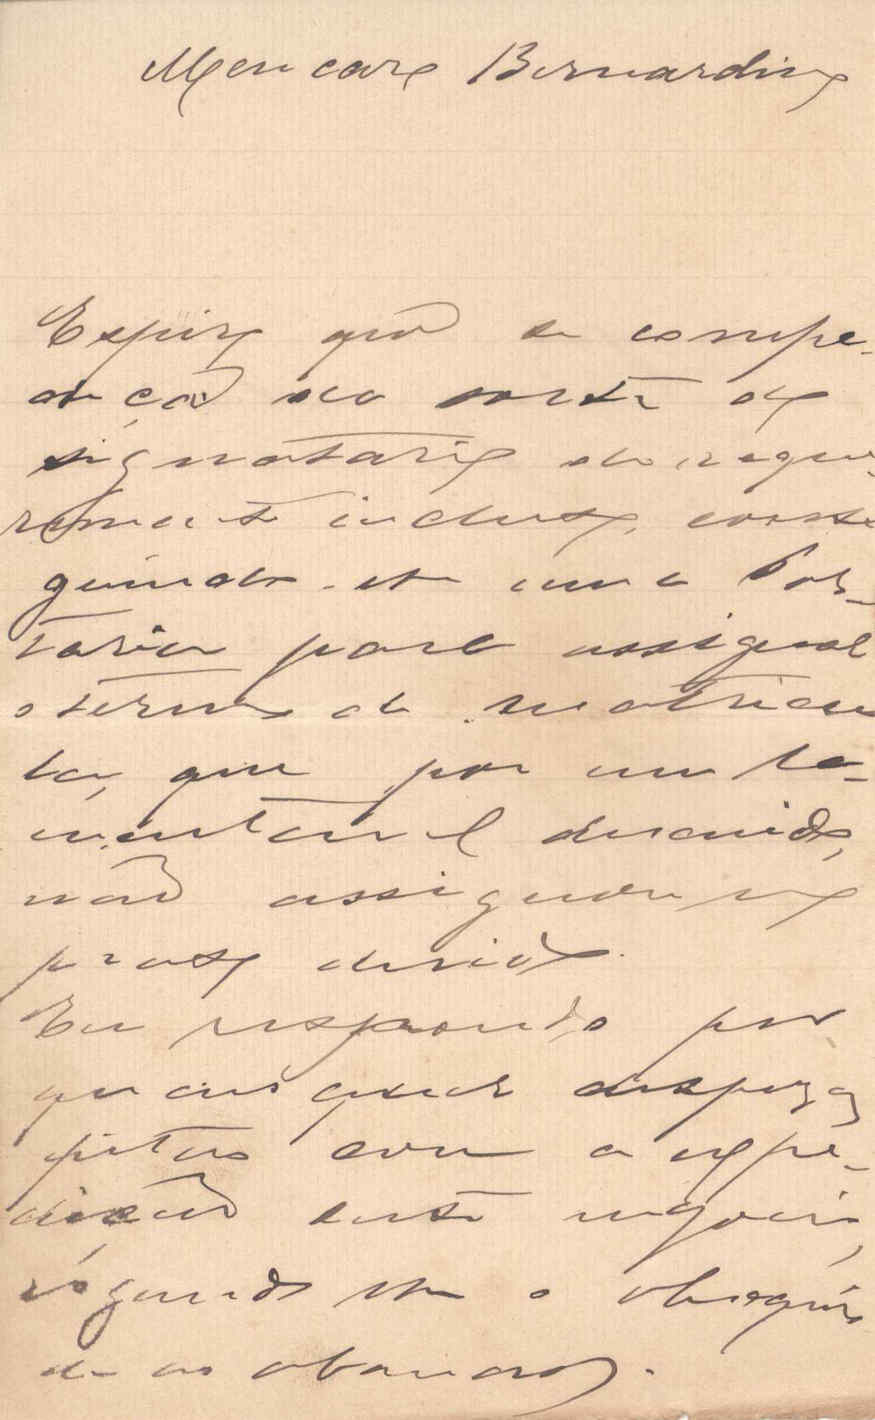 Meu caro Bernardino
Espero que se compa-
deça da sorte do
signatario do reque-
rimento incluso, conse
guindo-se uma Por-
taria para assignar
o termo de matricu
la, que por um la-
mentavel descuido,
não assignou no
praso devido.
Eu respondo por
quaesquer despezas
feitas com a expe-
dição deste negocio,
rogando-te o obsequio
de as abonares.